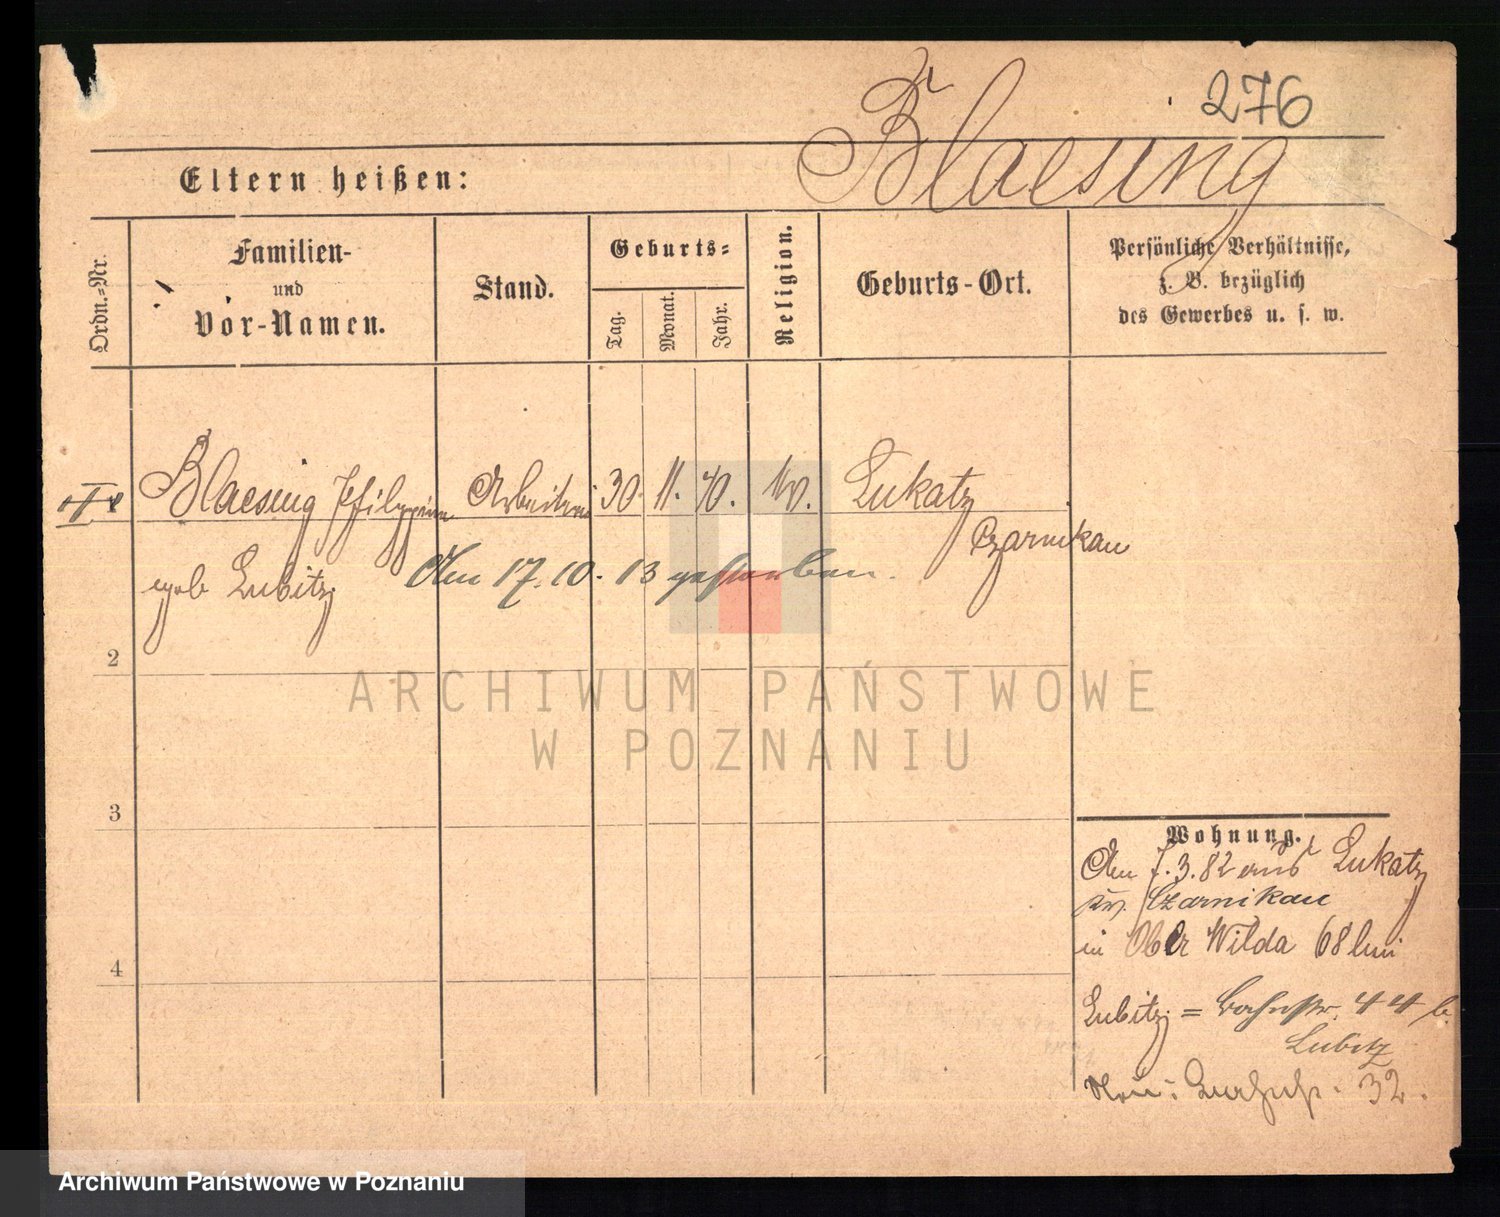 276
Blaesing
Eltern heißen:
Ordn.=Nr.
Familien-
und
Vor-Namen.
Stand.
Geburts=
Tag.
Monat.
Jahr.
Religion.
Geburts-Ort.
Persönliche Verhältnisse,
z. B. bezüglich
des Gewerbes u. s. w.
Blaesing 30. 11. 40. Lukatz
Czarnikau
geb Lubitz Am 17. 10. 13 gestorben.
2
3
4
ARCHIWUM PAŃSTWOWE
W POZNANIU
Wohnung.
Am 7.3.82 aus Lukatz
Czarnikau
in Ober Wilda 68 bei
Lubitz = Bahnstr. 44 b.
Lubitz
32.
Archiwum Państwowe w Poznaniu